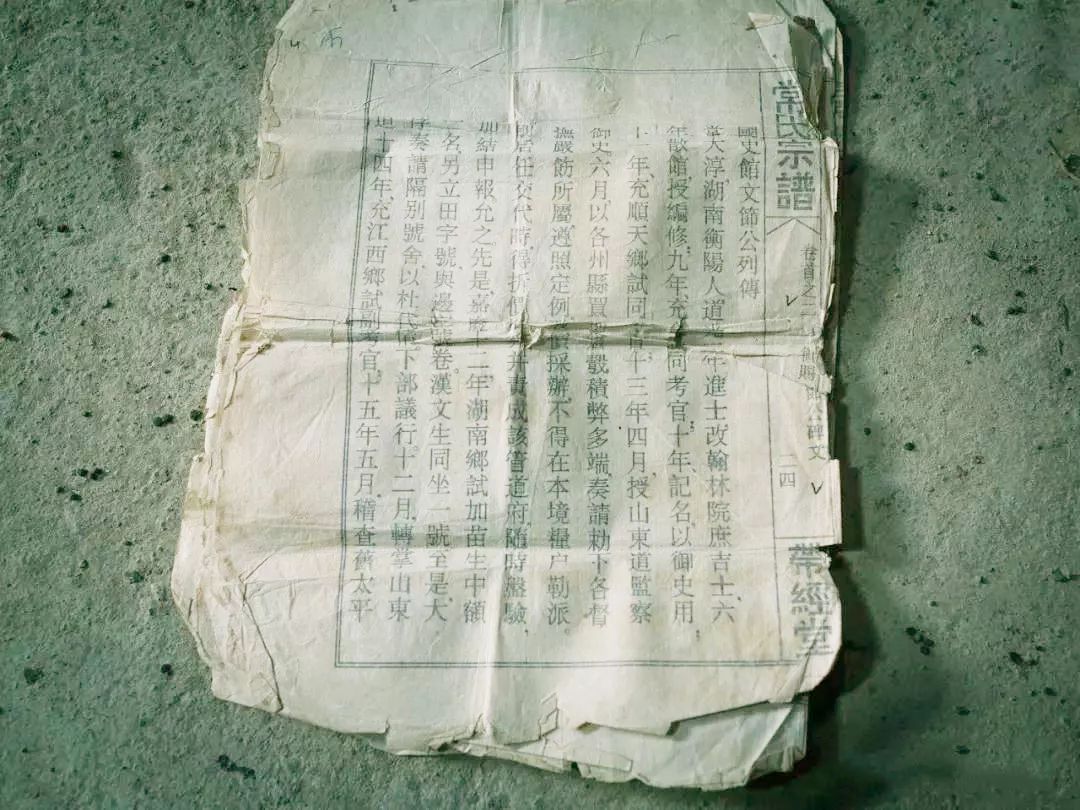 常氏宗譜
卷首之二
碑文
二四
帶經堂
國史館文節公列傳
大淳湖南衡陽人道光 年進士改翰林院庶吉士、六
年散館、授編修、九年、充 同考官、十年、記名、以御史用、
十一年、充順天鄉試同 官、十三年四月、授山東道監察
御史、六月、以各州縣買 穀積弊多端、奏請勅下各督
撫嚴飭所屬、遵照定例 採辦、不得在本境糧户勒派。
任交代時、得折價 并責成該管道府、隨時盤驗、
加結申報、允之。先是、嘉慶 二年、湖南鄉試、加苗生中額
一名、另立田字號、與邊 卷。漢文生同坐一號、至是、大
淳奏請隔別號舍、以杜代倩、下部議行。十二月、轉掌山東
道十四年、充江西鄉試副考官、十五年五月、稽查舊太平